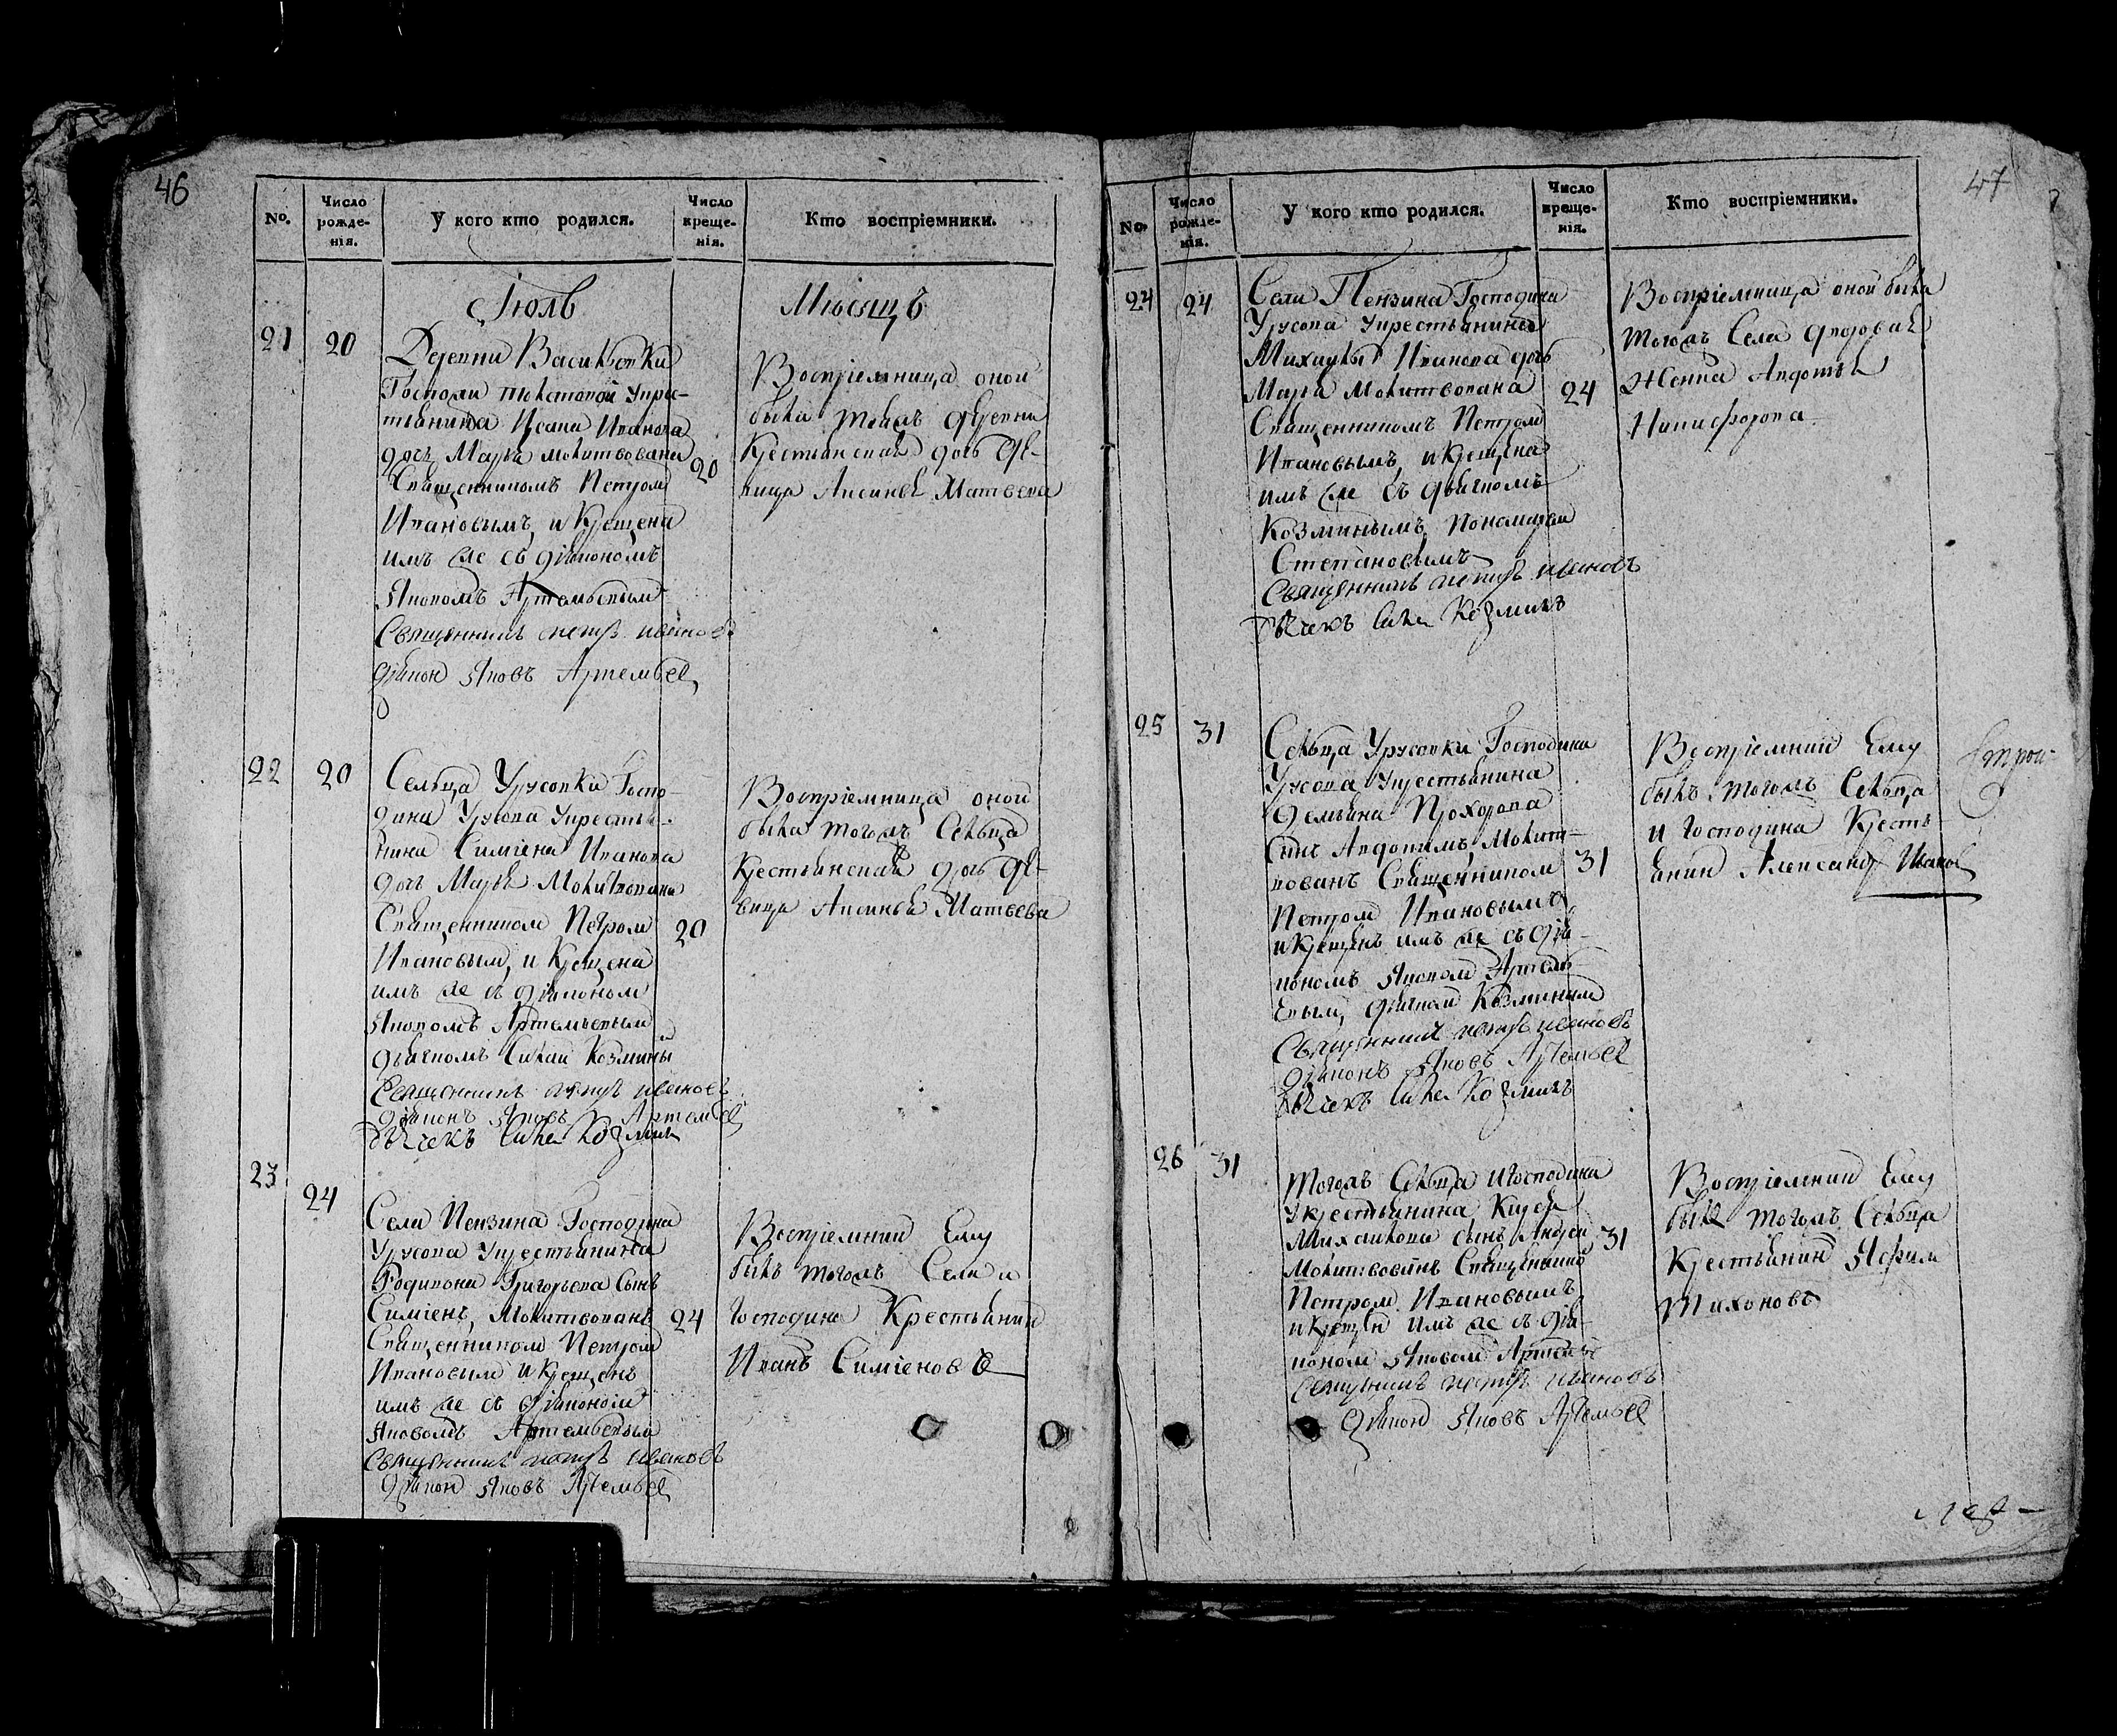 46
No.
Число рожде-нія.
У кого кто родился.
Число креще-нія.
Кто воспріемники.
Іюль Мѣсяцъ
21 20
Деревни Васильевки
Госпожи Толстовой у кресть-
тьянина Исаіи Иванова
дочь Марья молитвована
Священникомъ Петром
Ивановымъ, и Крещена
имъ же съ діякономъ
Яковомъ Артемьевым
Священникъ петръ ивановъ
діякон Яковъ Артемьев
20
Воспріемница оной
была тоежъ деревни
Крестьянская дочь дѣ-
вица Аксинья Матвеева
22 20
Сельца Урусовки Госпо-
дина Урусова у крестья-
нина Симіена Иванова
дочь Марья Молитвована
Священником Петром
Ивановым, и Крещена
имъ же съ діяконом
Яковомъ Артемьевым
дьячкомъ Силой Козминым
Священникъ петръ ивановъ
діяконъ Яковъ Артемьев
Дьячекъ Сила Козминъ
20
Воспріемница оной
была тогожъ Сельца
Крестьянская дочь дѣ-
вица Аксинья Матвеева
23 24
Села Пензина Господина
Урусова у крестьянина
Родивона Григорьева Сынъ
Симіенъ, Молитвованъ
Священником Петром
Ивановымъ и Крещенъ
имъ же съ діяконом
Яковомъ Артемьевым
Священникъ петръ ивановъ
Діякон Яковъ Артемьев
24
Воспріемник Ему
былъ тогожъ Села и
Господина Крестьянин
Иванъ Симіеновъ
47
No.
Число рожде-нія.
У кого кто родился.
Число креще-нія.
Кто воспріемники.
24 24
Села Пензина Господина
Урусова у крестьянина
Михайлы Иванова дочь
Марья Молитвована
Священникомъ Петром
Ивановымъ, и Крещена
имъ же съ дьячкомъ
Козминымъ, Пономарем
Степановымъ
Священникъ петръ ивановъ
Дьячекъ Сила Козминъ
24
Воспріемница оной была
тогожъ Села
Женка Авдотья
Никифорова
25 31
Сельца Урусовки Господина
Урусова у крестьянина
Демьяна Прохорова
Сынъ Молит-
вованъ Священником
Петром Ивановымъ,
и Крещенъ имъ же съ дія-
кономъ Яковом Артемь-
евым, дьячком Козминым
Священникъ петръ ивановъ
діяконъ Яковъ Артемьев
Дьячекъ Сила Козминъ
31
Воспріемник Ему
былъ тогожъ Сельца
и Господина Кресть-
янин Александр Иванов
26 31
Тогожъ Сельца и Господина
У крестьянина
Михайлова сынъ
Молитвованъ Священником
Петром Ивановымъ
и Крещен имъ же съ дія-
коном Яковом
Священникъ петръ ивановъ
Діякон Яковъ Артемьев
31
Воспріемник Ему
былъ тогожъ Сельца
Крестьянин Яфим
Тихоновъ